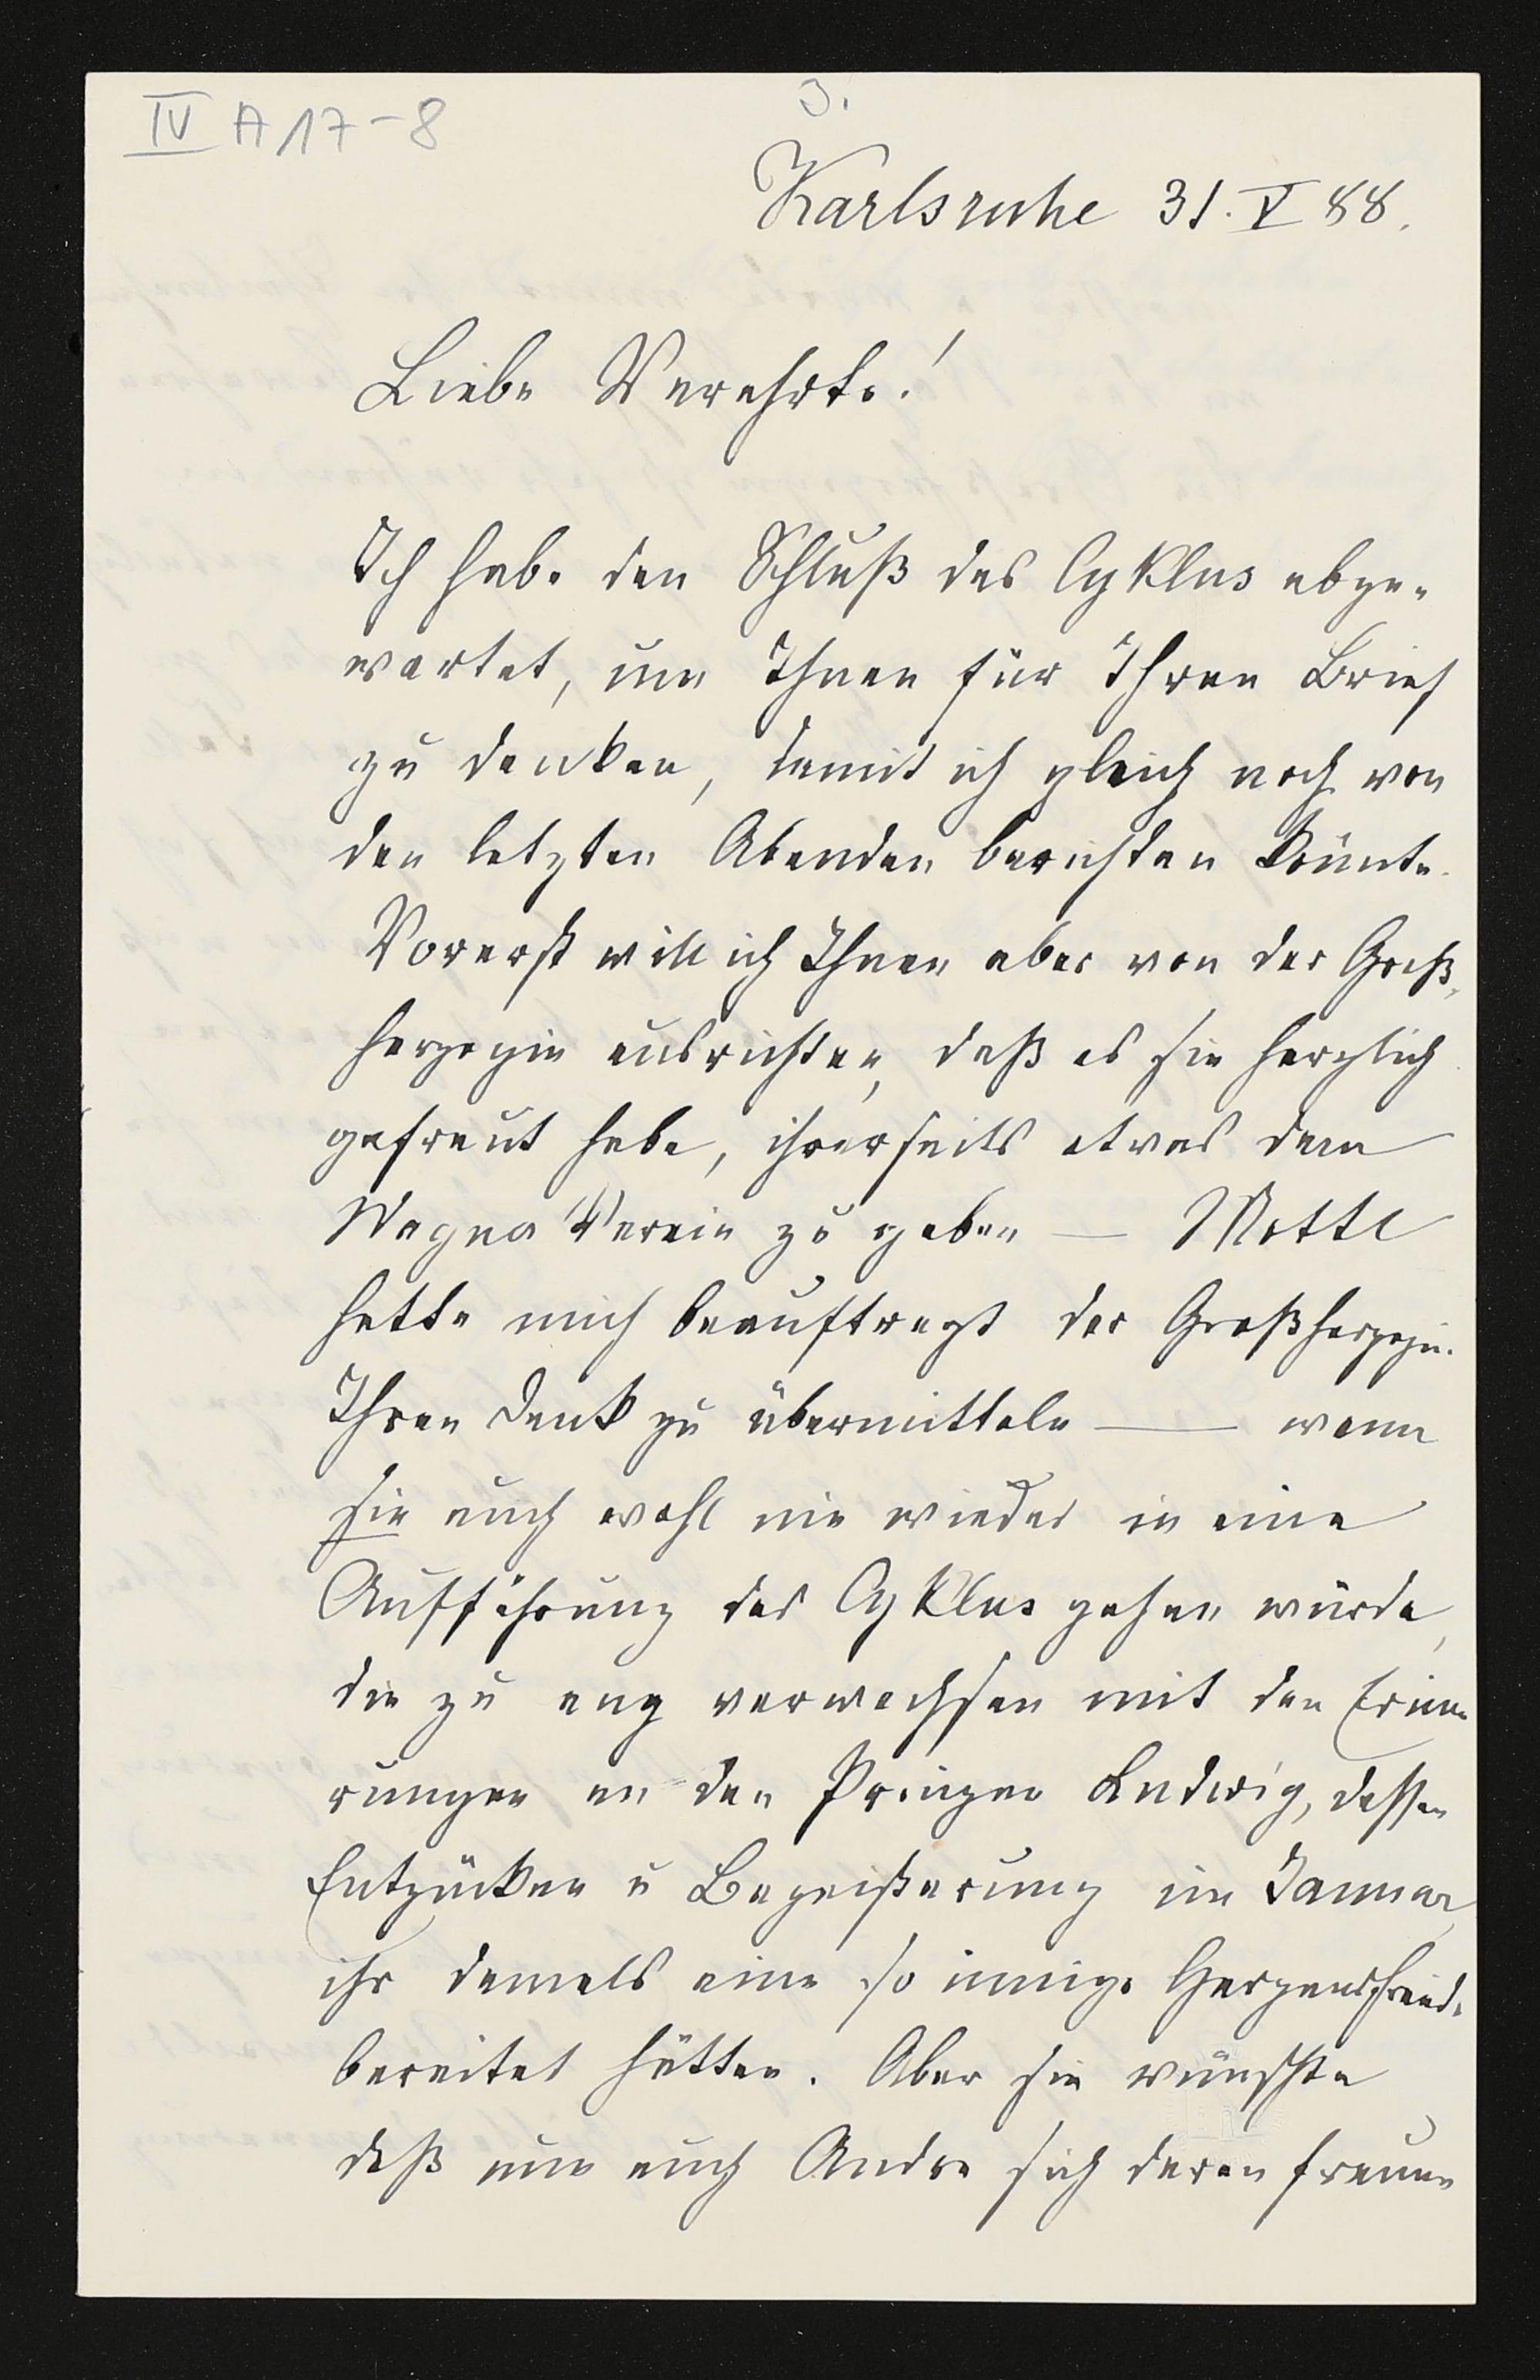 IV A 17-8
3.
Karlsruhe 31. V 88.
Liebe Verehrte!
Ich habe den Schluß des Cyklus abge-
wartet, um Ihnen für Ihren Brief
zu danken, damit ich gleich noch von
den letzten Abenden berichten könnte.
Vorerst will ich Ihnen aber von der Groß-
herzogin ausrichten, daß es sie herzlich
gefreut habe, ihrerseits etwas dem
Wagner Verein zu geben — Mottl
hatte mich beauftragt der Großherzogin
Ihren Dank zu übermitteln — wenn
sie auch wohl nie wieder in eine
Aufführung des Cyklus gehen würde,
die zu eng verwachsen mit den Erinne-
rungen an den Prinzen Ludwig, dessen
Entzücken u Begeisterung im Januar,
ihr damals eine so innige Herzensfreude
bereitet hätten. Aber sie wünschte
daß nun auch Andre sich daran freuen